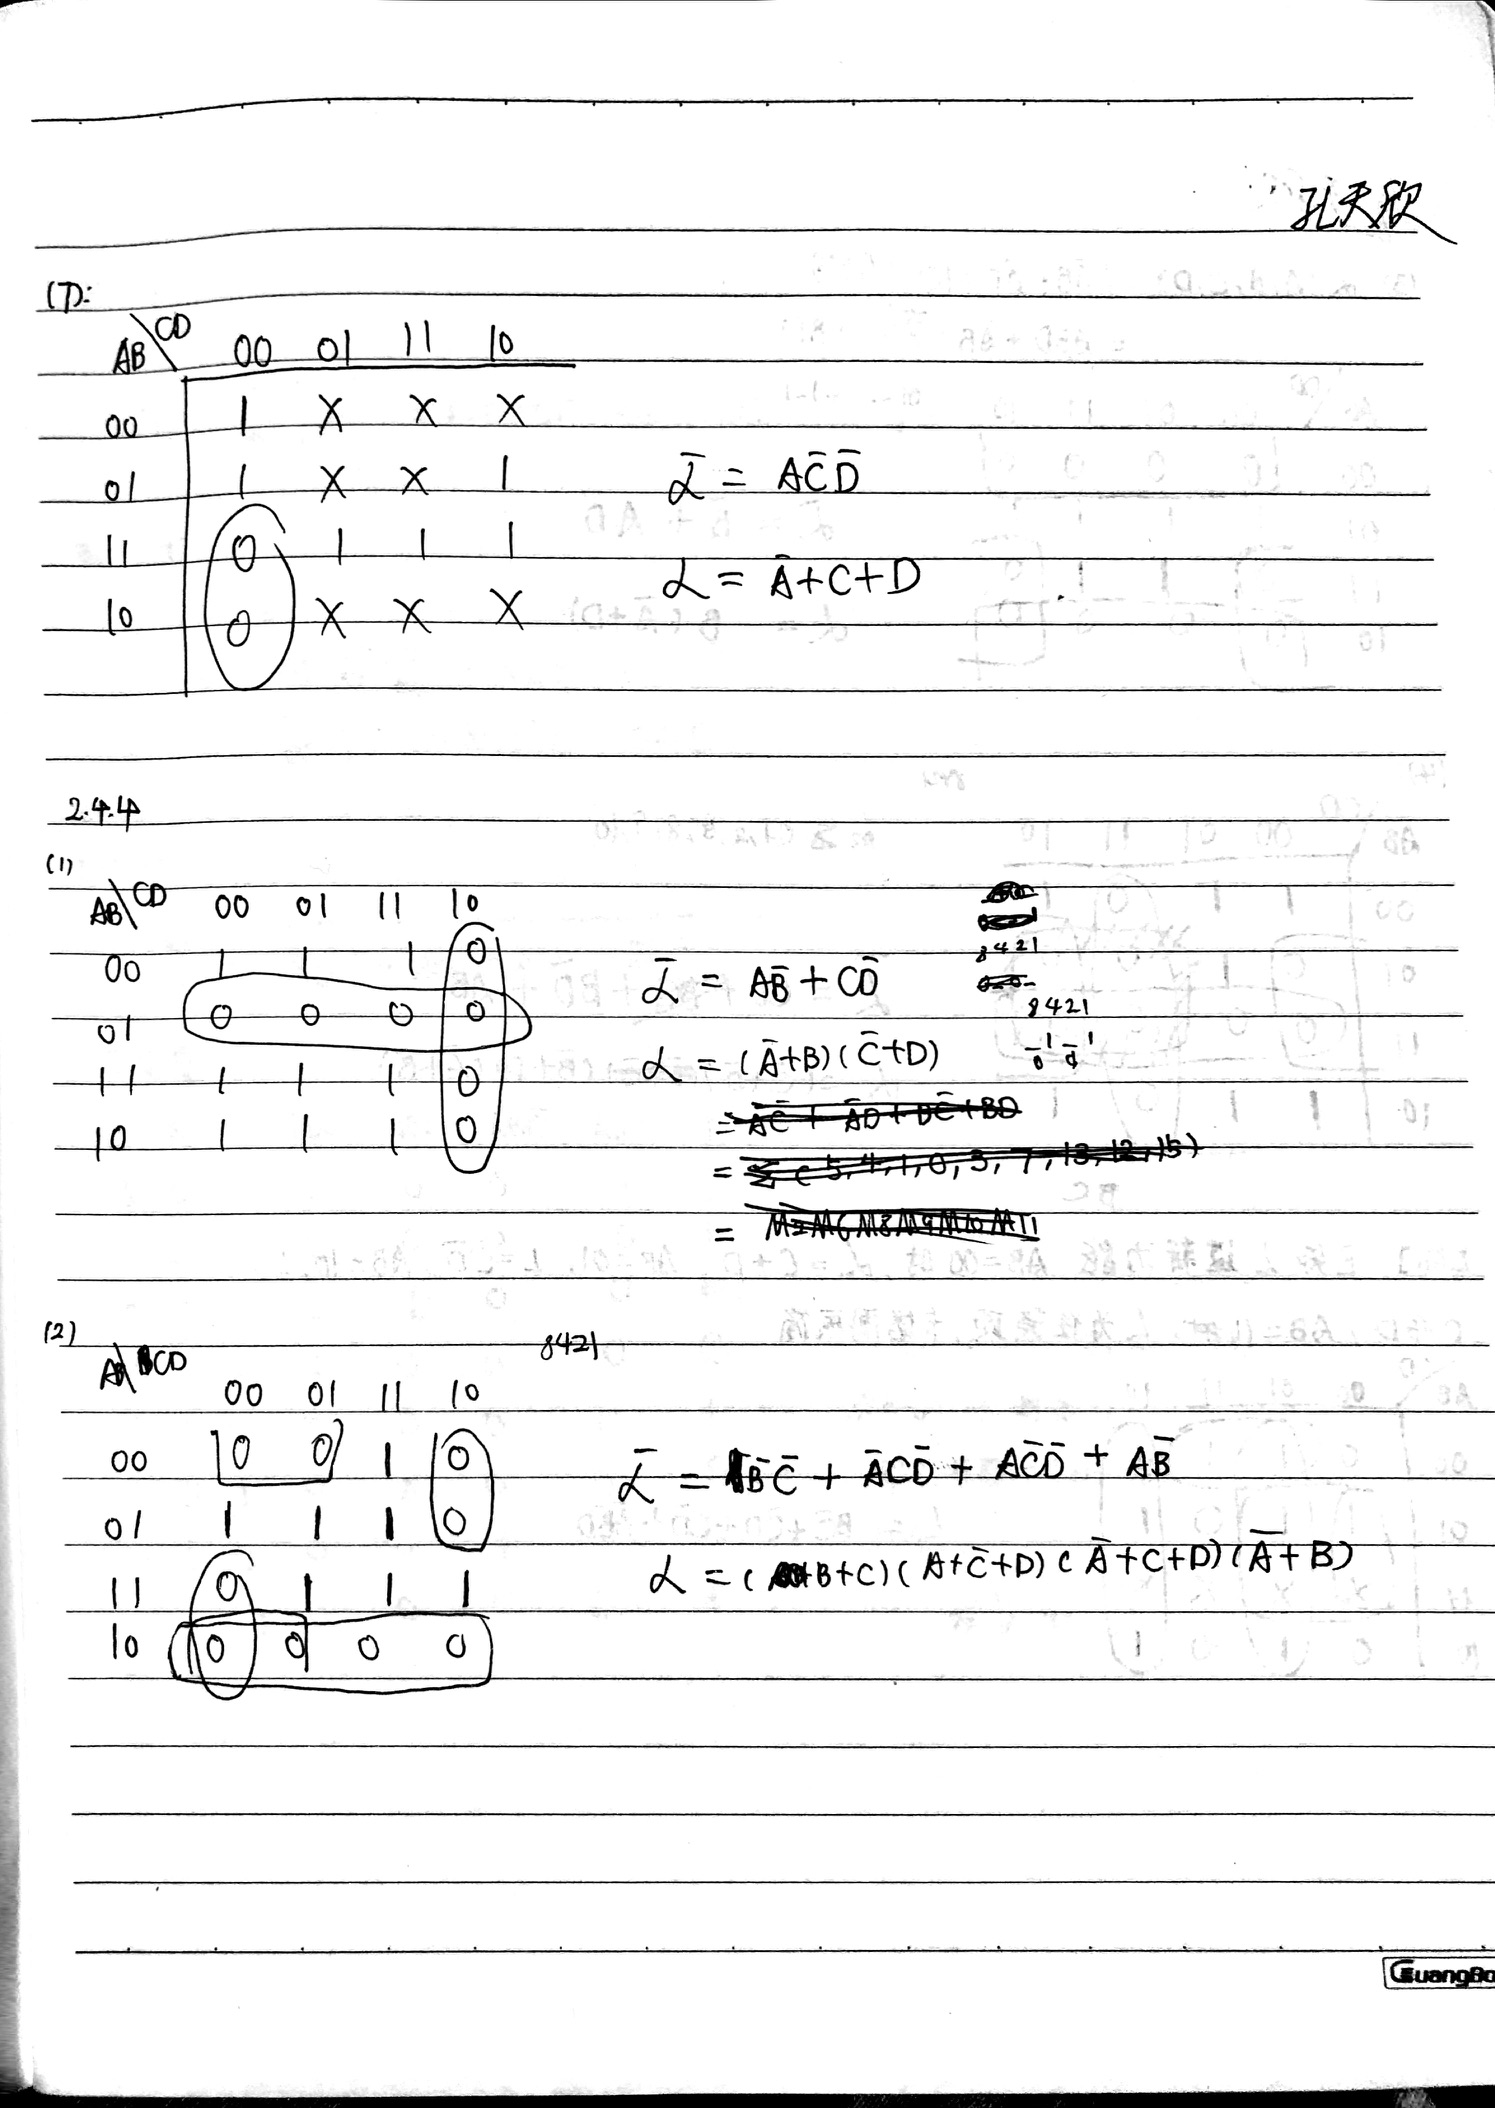 孔天欣
(7):
AB\CD 00 01 11 10
00 1 X X X
01 1 X X 1
11 0 1 1 1
10 0 X X X
L̄ = AC̄D̄
L = Ā+C+D
2.4.4
(1)
AB\CD 00 01 11 10
00 1 1 1 0
01 0 0 0 0
11 1 1 1 0
10 1 1 1 0
L̄ = AB̄ + CD̄
L = (Ā+B)(C̄+D)
= ĀC̄ + ĀD + BC̄ + BD
= Σ(5,4,1,0,3,7,13,12,15)
=
8421
8421
(2)
8421
CD
00 01 11 10
00 0 0 1 0
01 1 1 1 0
11 0 1 1 1
10 0 0 0 0
L̄ = B̄C̄ + ĀCD̄ + AC̄D̄ + AB̄
L = (B+C)(A+C̄+D)(Ā+C+D)(Ā+B)
GuangBo